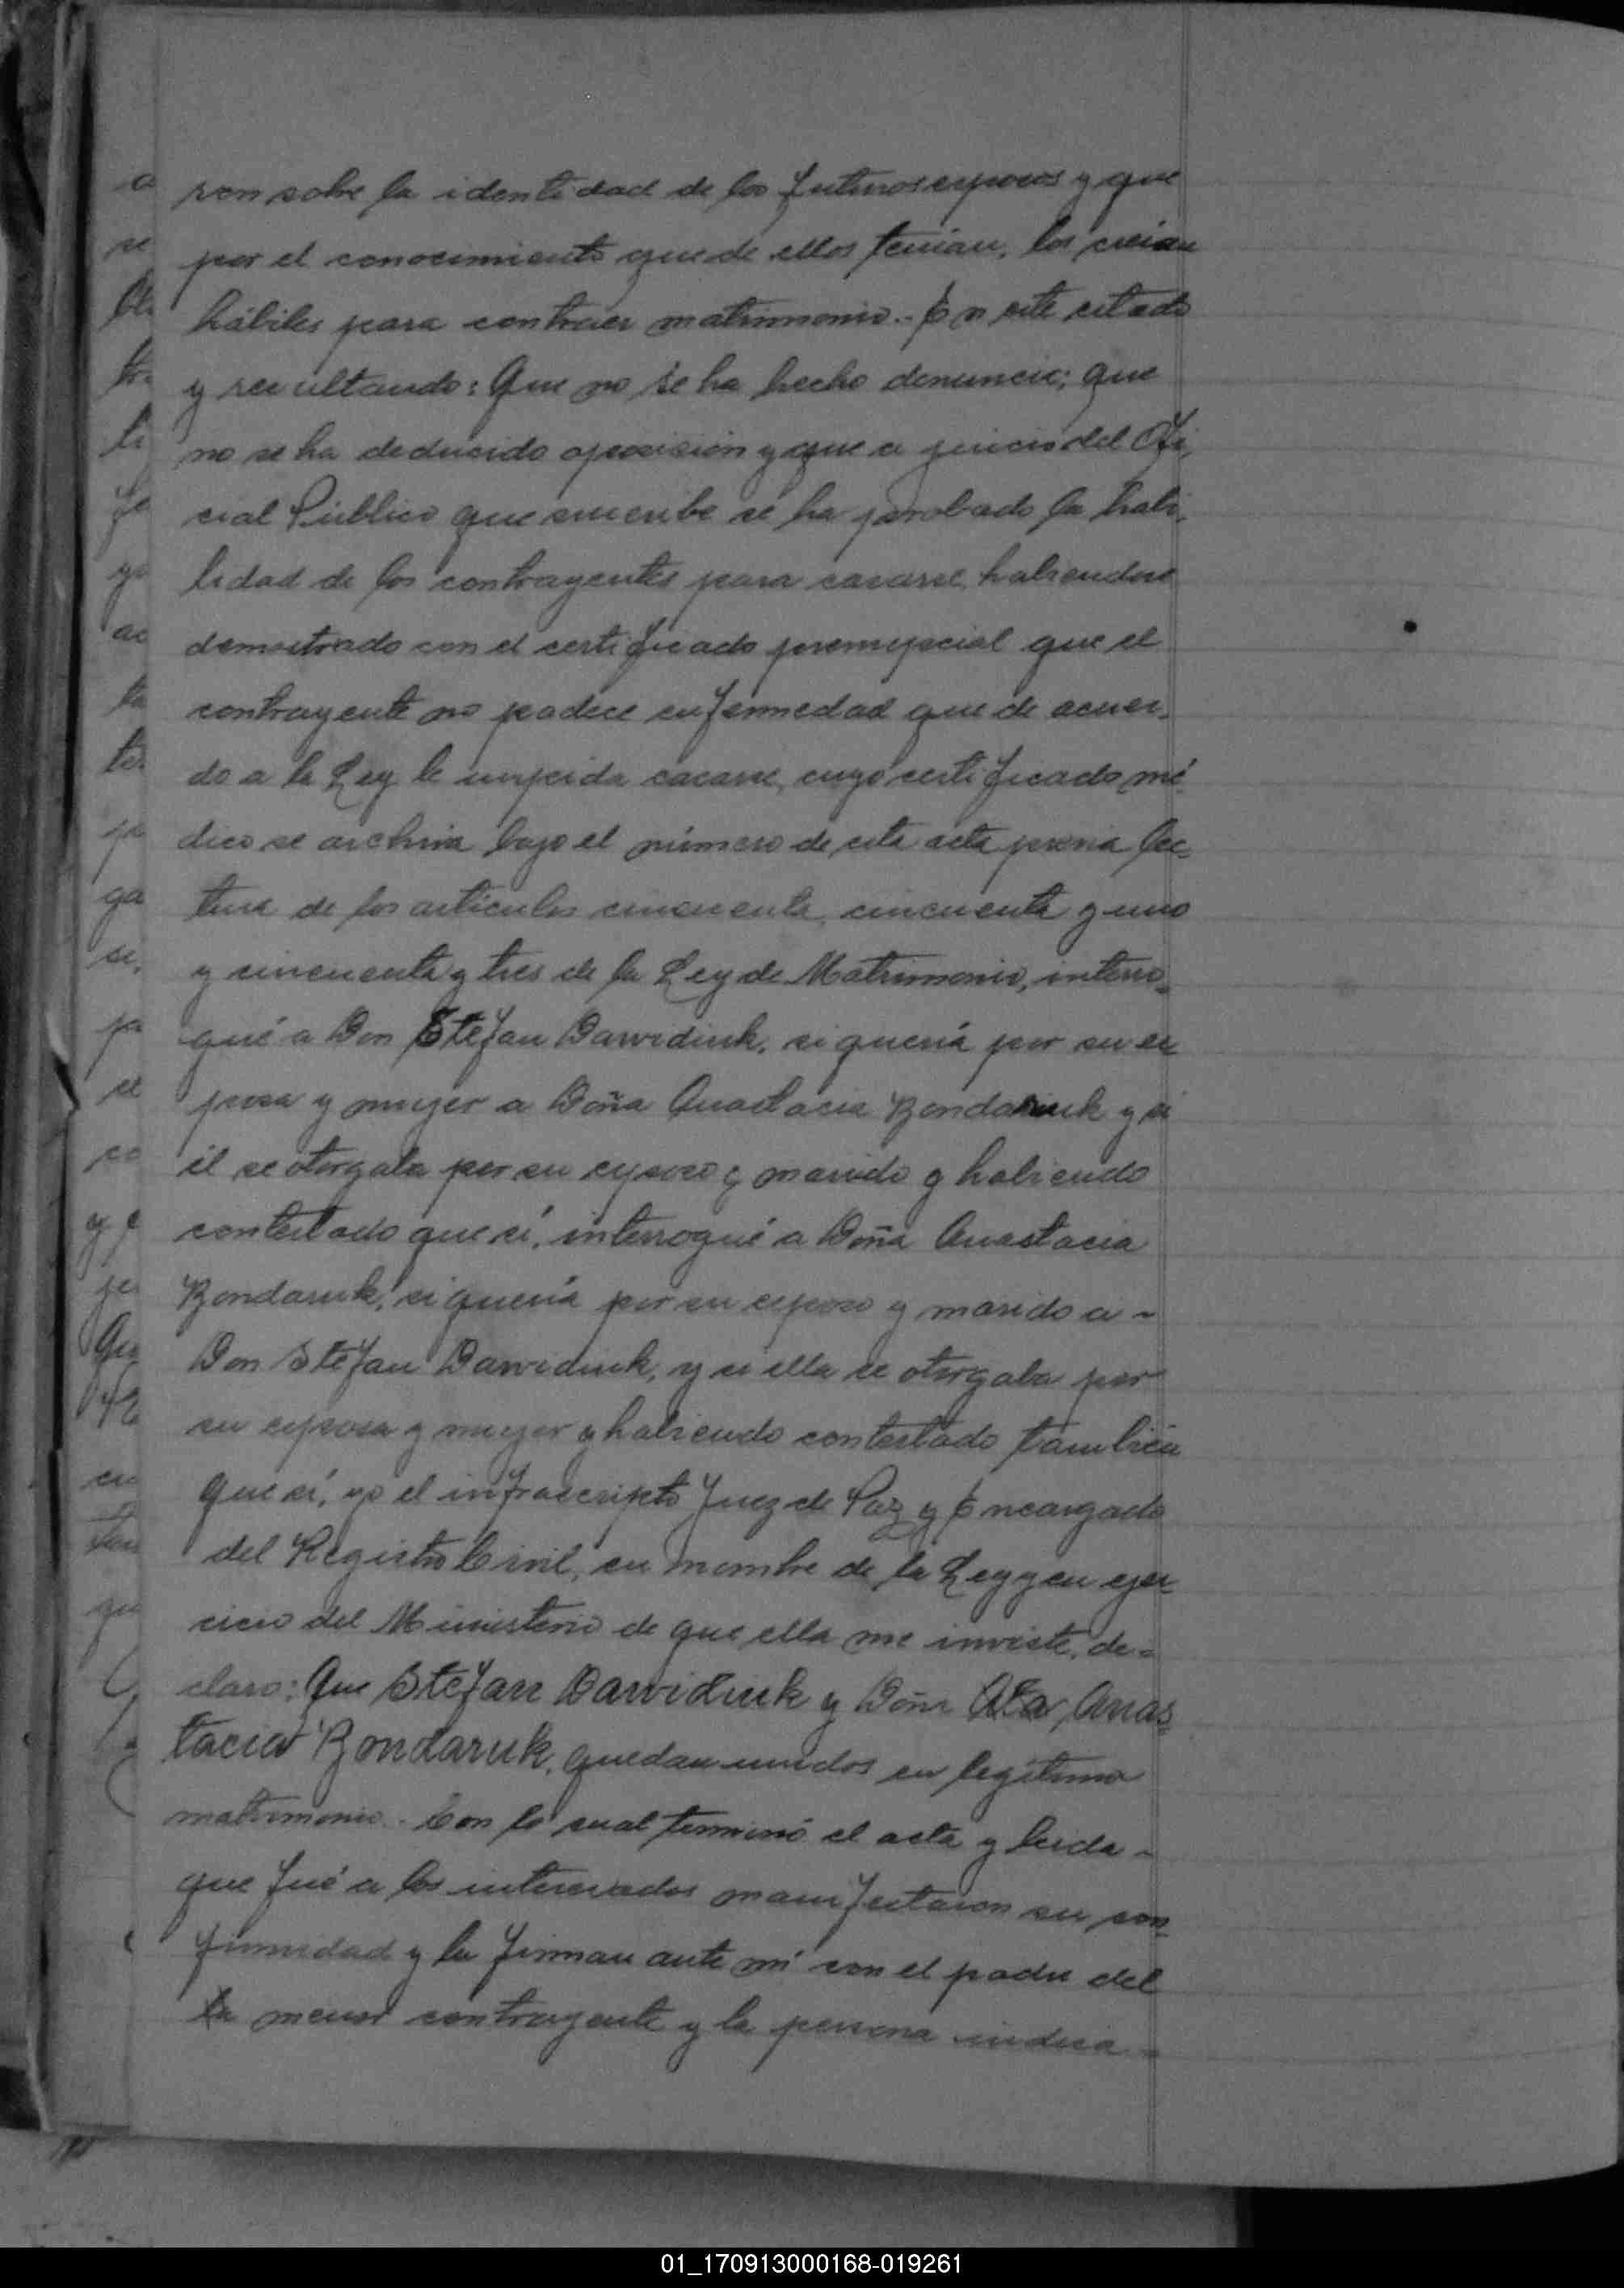 ron sobre la identidad de los futuros esposos y que
por el conocimiento que de ellos tenían, los creían
hábiles para contraer matrimonio.- En este estado
y resultando: Que no se ha hecho denuncia; que
no se ha deducido oposición y que a juicio del Ofi-
cial Público que suscribe se ha probado la habi-
lidad de los contrayentes para casarse, habiendose
demostrado con el certificado prenupcial que el
contrayente no padece enfermedad que de acuer-
do a la Ley le impida casarse, cuyo certificado mé-
dico se archiva bajo el número de esta acta previa lec-
tura de los artículos cincuenta, cincuenta y uno
y cincuenta y tres de la Ley de Matrimonio, interro-
gué a Don Stefan Dawidiuk, si quería por su es-
posa y mujer a Doña Anastacia Bondaruk y si
él se otorgaba por su esposo y marido y habiendo
contestado que sí, interrogué a Doña Anastacia
Bondaruk, si quería por su esposo y marido a -
Don Stefan Dawidiuk, y si ella se otorgaba por
su esposa y mujer y habiendo contestado también
que sí, yo el infrascripto Juez de Paz y Encargado
del Registro Civil, en nombre de la Ley y en ejer-
cicio del Ministerio de que ella me inviste, de-
claro: Que Stefan Dawidiuk y Doña Anas-
tacia Bondaruk, quedan unidos en legítimo
matrimonio.- Con lo cual terminó el acta y leida -
que fué a los interesados manifestaron su con-
firmidad y la firman ante mí con el padre del
la menor contrayente y la persona indica-
01_170913000168-019261